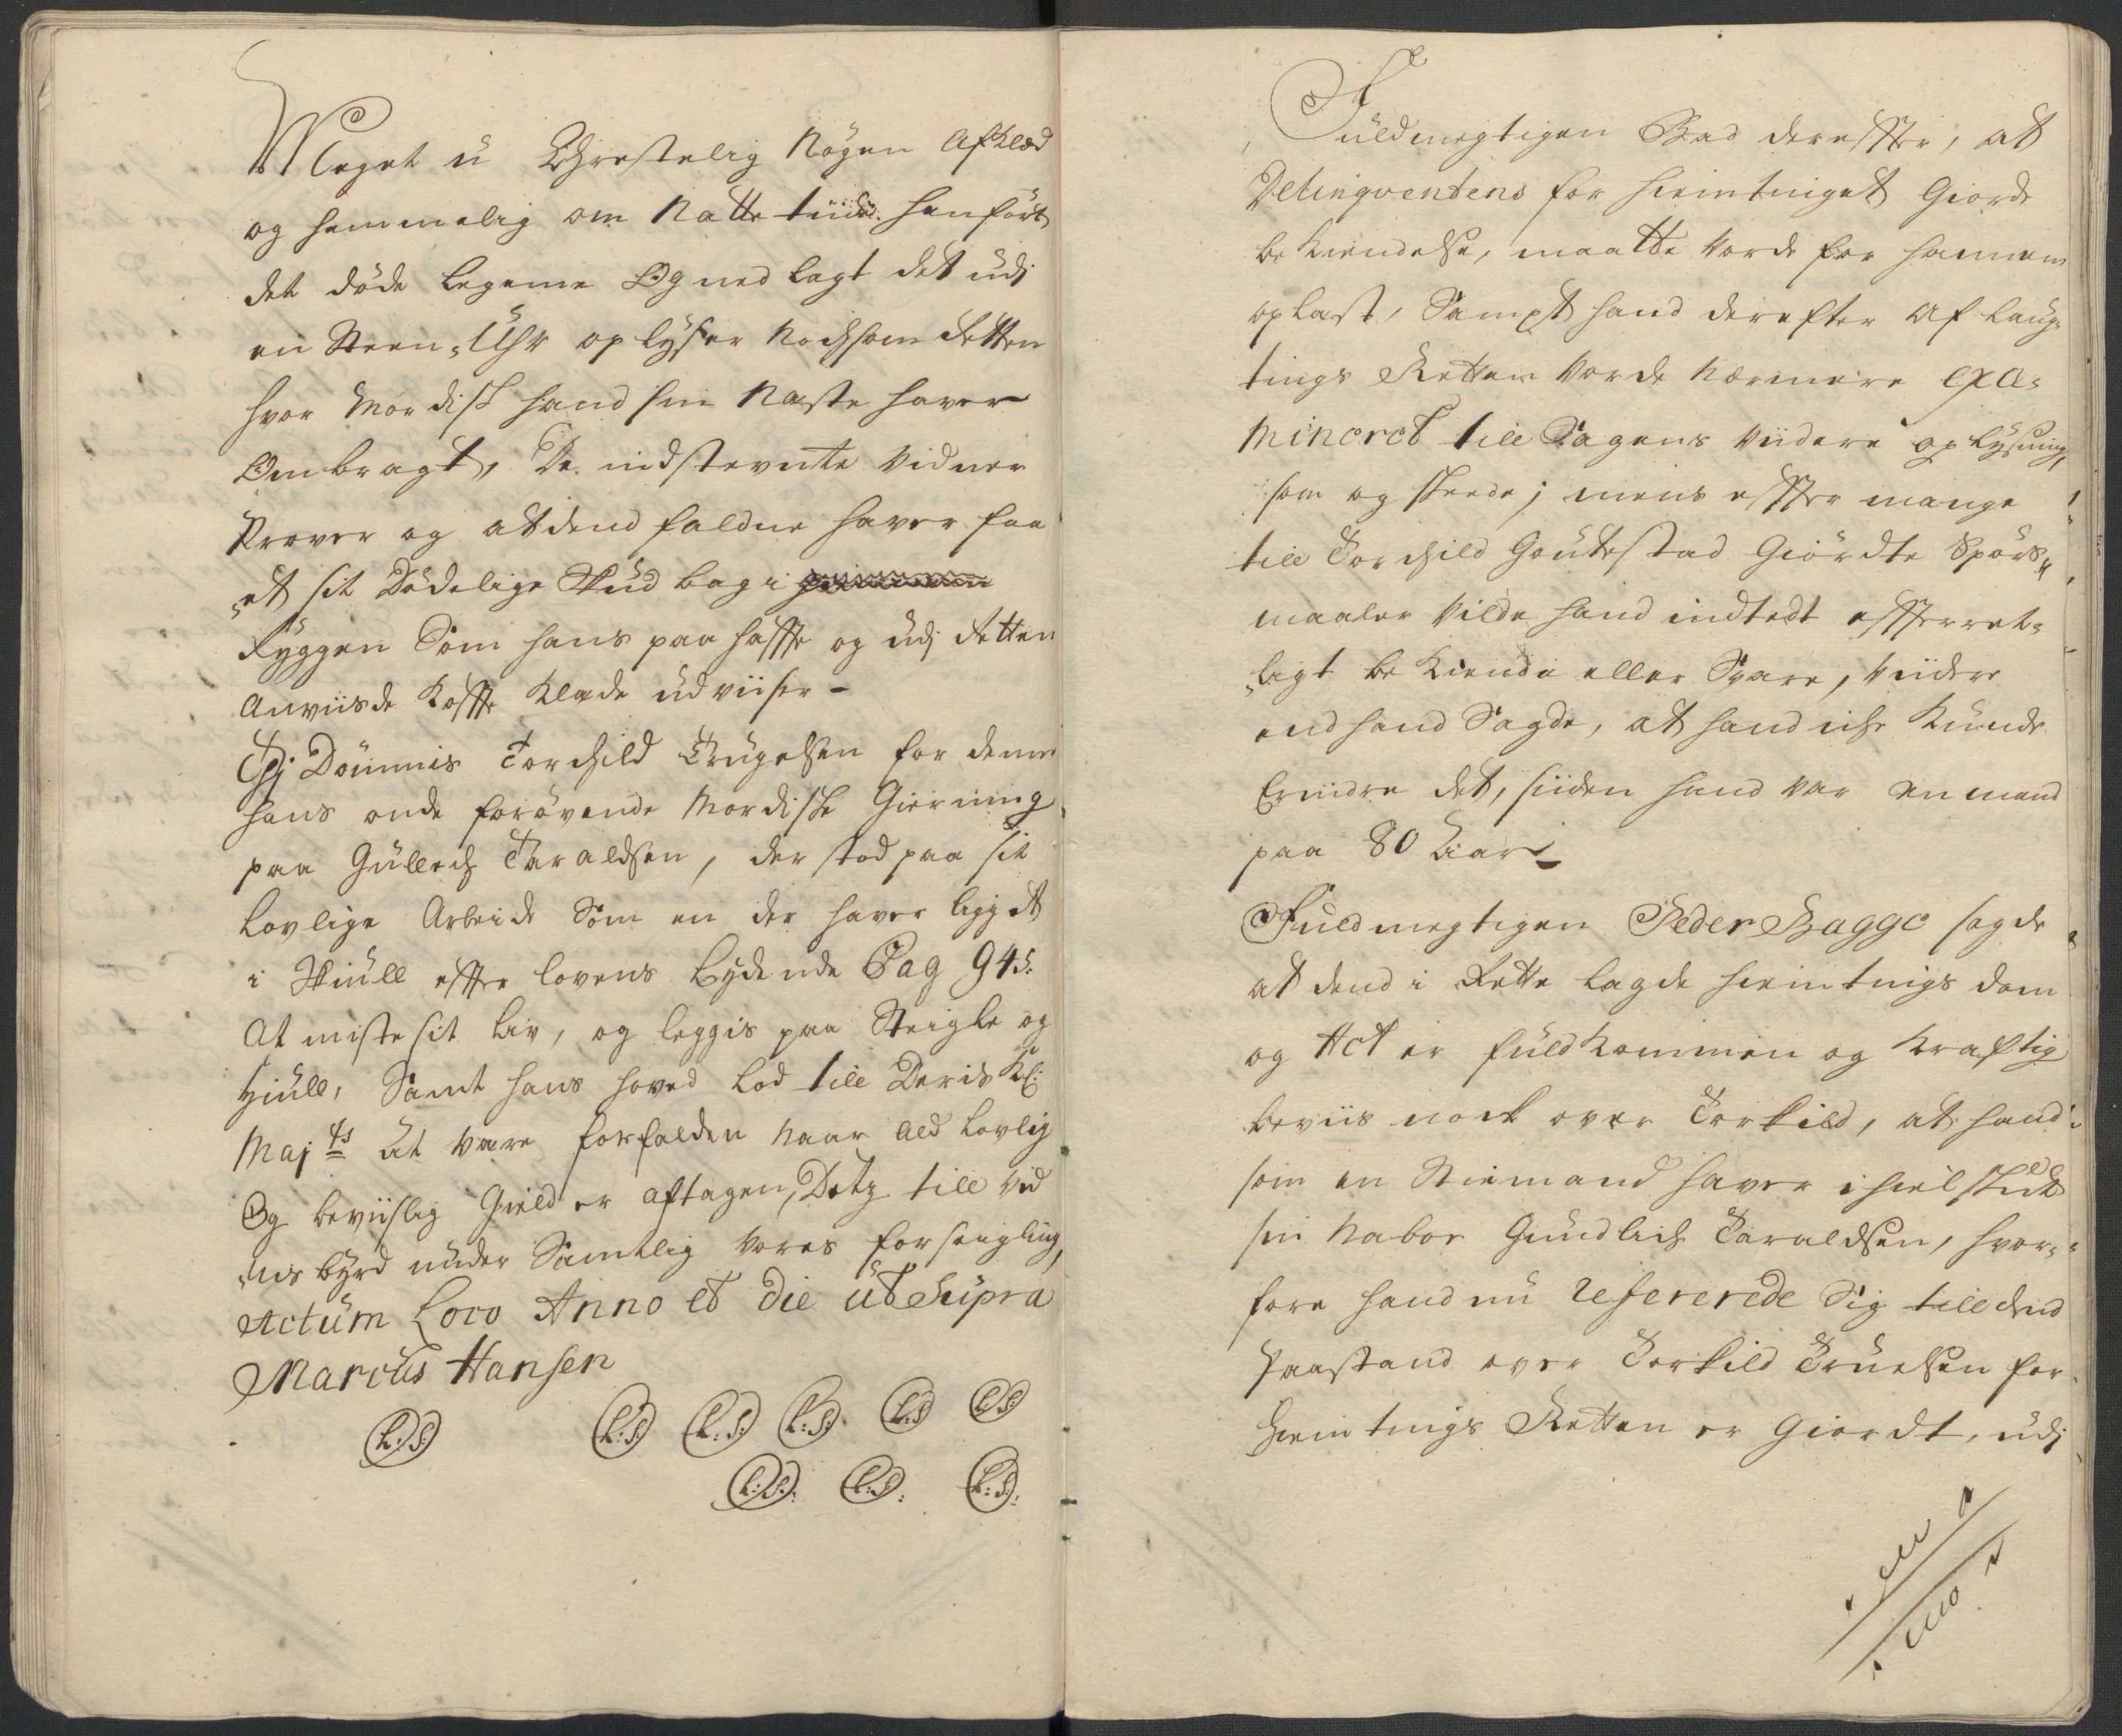 Meget u Christelig Nögen Afklæd
og hemmelig om Natte tiider henfört
det döde legeme Og ned lagt det udj
en Steen-Uhr oplyser Nochsom Retten
hvor Mordisk hand sin Næste haver
Ombragt, De indstevnte Vidner
Prover og at dend faldne haver faa
et sit Dödelige Skud bag i
Ryggen Som hans paa haffte og udj Retten
Anviisde Koffte Klæde udviiser -
Thj Dömmis Torchild Trugelsen for denne
hans onde forövende Mordiske Gierning
paa Gullech Taraldsen, der stod paa sit
Lovlige Arbeide Som en der haver ligget
i Skiull effter lovens Lydende Pag 945:
At miste sit Liv, og leggis paa Steigle og
Hiull, Samt hans hoved Lod till Deris Kl:
Majts At være forfalden naar Ald Lovlig
Og beviislig Gield er aftagen, Dets till Vid
nis byrd under Samtlig Vores forseigling,
Actum Loco Anno et Die ut Supra
Marcus Hansen
L:S: L:S: L:S: L:S: L:S: L:S:
L:S: L:S: L:S:
Fuldmegtigen Bad dereffter, at
Delinqventens for hiemtinget Giorde
bekiendelse, maatte Vorde for hannem
oplæst, Sampt hand derefter Af laug-
tings Retten Vorde nærmere exa-
mineret till Sagens Viidere oplysning,
som og skeede; mens effter mange
till Torchild Goutestad Giördte Spörs-
maaler Vilde hand indtedt effterret-
ligt bekiende eller Svare, Viidere
end hand Sagde, at hand iche Kunde
Erindre det, siiden hand var en mand
paa 80 Aar
Fuldmegtigen Peder Bagge sagde
at dend i Rette lagde hiemtings dom
og Act er fuldkommen og Kraftig
beviis nock over Torkild, at hand
som en Stiemand haver ihiel skudt
sin Nabor Gundlich Taraldsen, hvor-
fore hand nu refererede Sig till dend
Paastand over Torkild Truelsen for
Hiemtings Retten er Giordt, udj